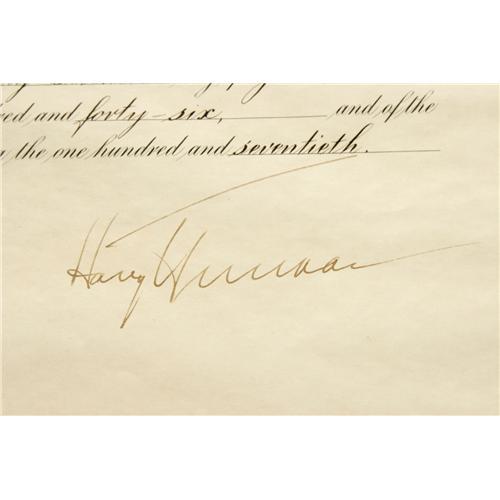 red and forty-six, and of the
the one hundred and seventieth.
Harry Truman